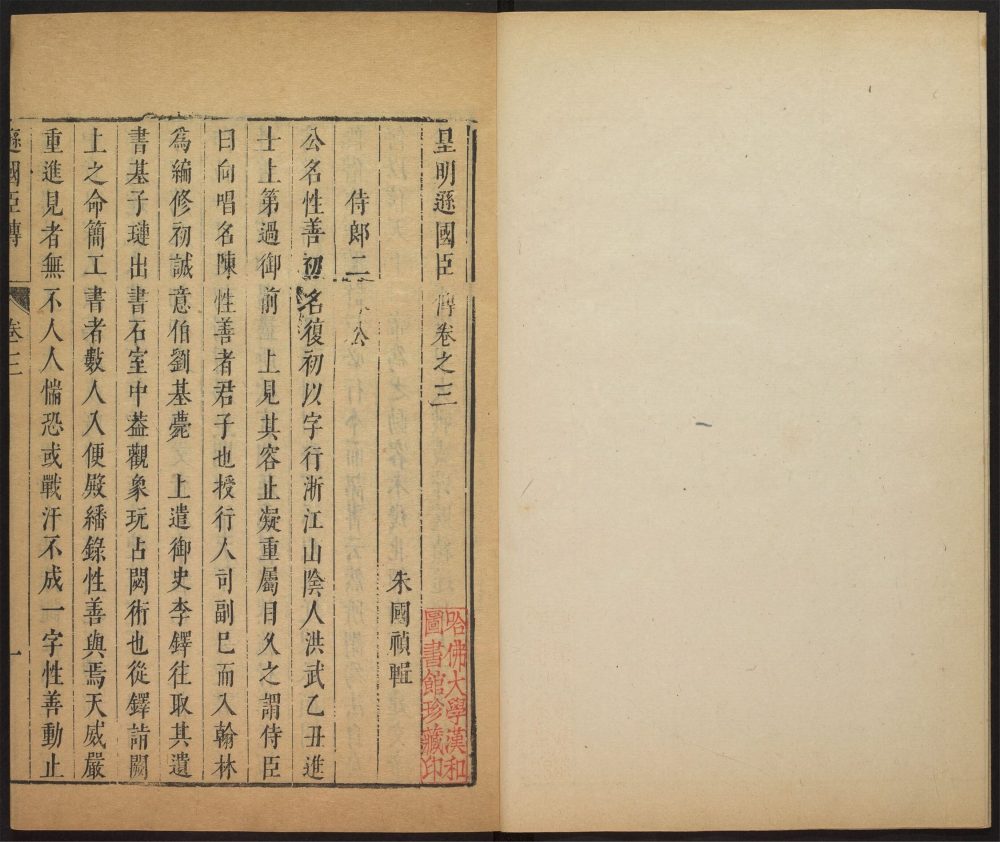 皇明遜國臣傳卷之三
朱國禎輯
侍郎二 公
公名性善初名復初以字行浙江山陰人洪武乙丑進
士上第過御前 上見其容止凝重屬目久之謂侍臣
曰向唱名陳性善者君子也授行人司副已而入翰林
為編修初誠意伯劉基薨 上遣御史李鐸往取其遺
書基子璉出書石室中葢觀象玩占閟術也從鐸請闕
上之命簡工書者數人入便殿繙錄性善與焉天威嚴
重進見者無不人人惴恐或戰汗不成一字性善動止
遜國臣傳 卷三 一
哈佛大學漢和
圖書館珍藏印